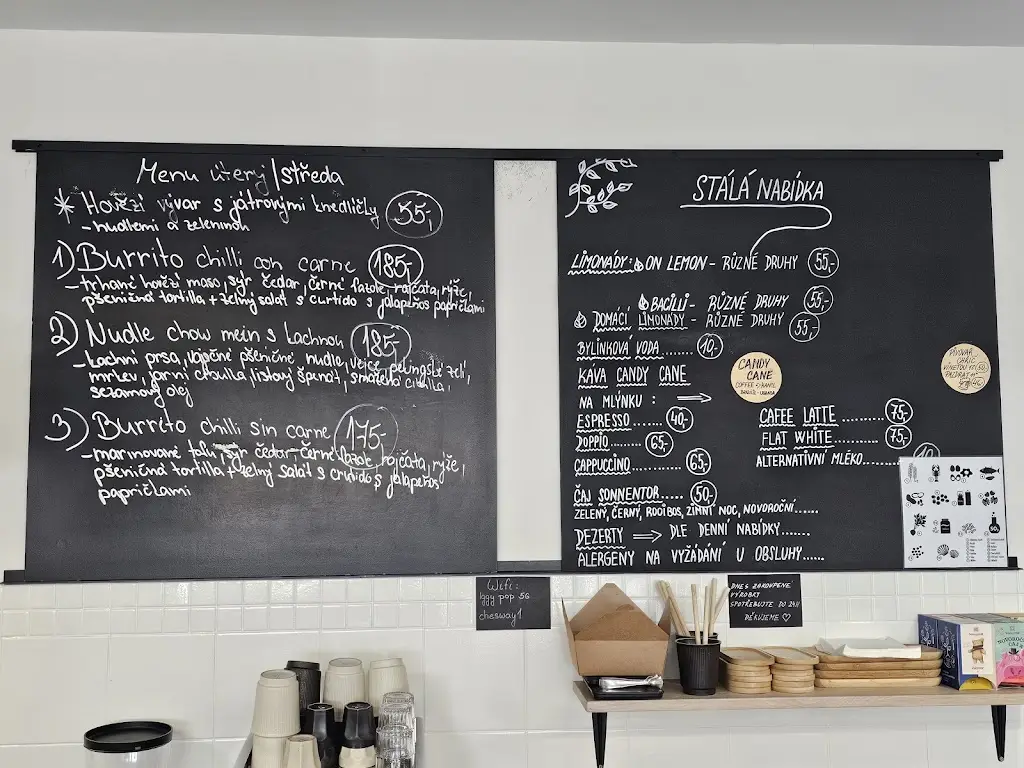 Menu úterý/středa
* Hovězí vývar s játrovými knedlíčky 55,-
- nudlemi a zeleninou
1) Burrito chilli con carne 185,-
- trhané hovězí maso, sýr čedar, černé fazole, rajčata, rýže,
pšeničná tortilla + zelný salát s curtido s jalapeños papričkami
2) Nudle chow mein s kachnou 185,-
- kachní prsa, vaječné pšeničné nudle, vejce, pekingské zelí,
mrkev, jarní cibulka, listový špenát, smažená cibulka,
sezamový olej
3) Burrito chilli sin carne 175,-
- marinované tofu, sýr čedar, černé fazole, rajčata, rýže,
pšeničná tortilla + zelný salát s crutido s jalapeños
papričkami
STÁLÁ NABÍDKA
LIMONÁDY: ON LEMON - RŮZNÉ DRUHY 55,-
BACILLI - RŮZNÉ DRUHY 55,-
DOMÁCÍ LIMONÁDY - RŮZNÉ DRUHY 55,-
BYLINKOVÁ VODA........ 10,-
KÁVA CANDY CANE
NA MLÝNKU :
CANDY
CANE
ESPRESSO ....... 40,-
DOPPIO....... 65,-
CAPPUCCINO............ 65,-
CAFEE LATTE .......... 75,-
FLAT WHITE........... 75,-
ALTERNATIVNÍ MLÉKO......
ČAJ SONNENTOR...... 50,-
ZELENÝ, ČERNÝ, ROOIBOS, ZIMNÍ NOC, NOVOROČNÍ......
DEZERTY DLE DENNÍ NABÍDKY.......
ALERGENY NA VYŽÁDÁNÍ U OBSLUHY.....
Wifi:
Iggy pop 5G
chesway1
DNES ZAKOUPENÉ
VÝROBKY
SPOTŘEBUJTE DO 24H
DĚKUJEME ♡